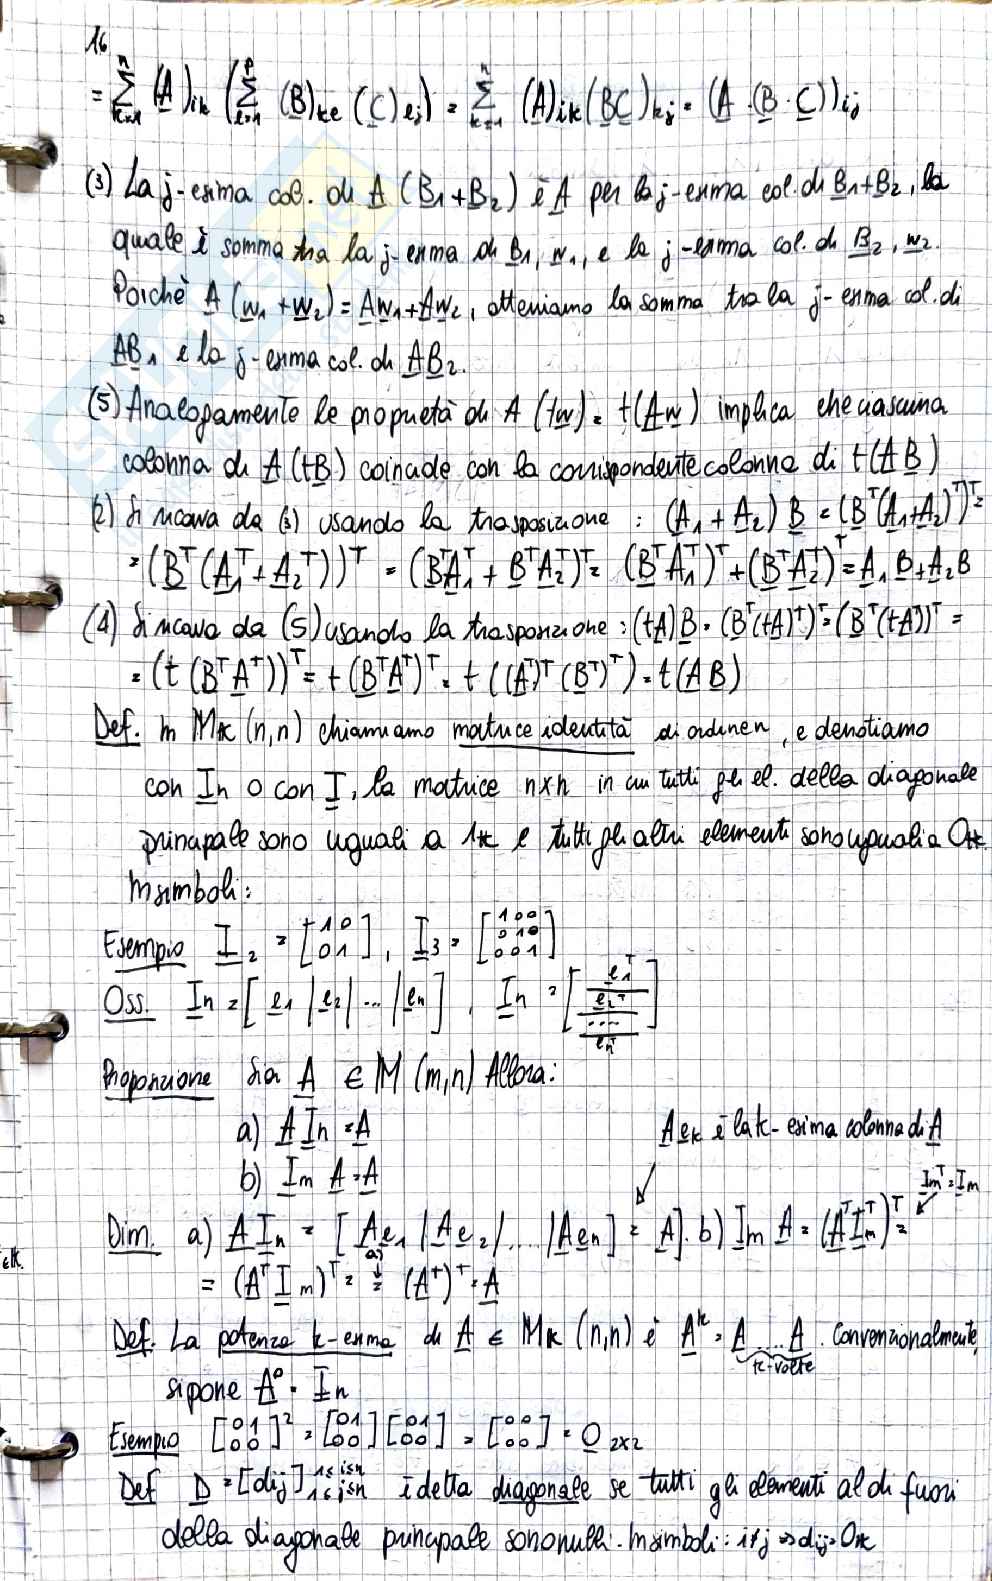 16
= Σ_{k=1}^{n} (A)ik (Σ_{l=1}^{p} (B)kl (C)lj) = Σ_{k=1}^{n} (A)ik (BC)kj = (A·(B·C))ij
(3) La j-esima col. di A (B1+B2) è A per la j-esima col. di B1+B2, la
quale è somma tra la j-esima di B1, w1, e la j-esima col. di B2, w2.
Poichè A (w1+w2) = Aw1+Aw2, otteniamo la somma tra la j-esima col. di
AB1 e la j-esima col. di AB2.
(5) Analogamente le proprietà di A (tw) = t(Aw) implica che ciascuna
colonna di A(tB) coincide con la corrispondente colonna di t(AB)
(2) Si ricava da (3) usando la trasposizione : (A1+A2) B = (B^T(A1+A2)^T)^T =
= (B^T(A1^T+A2^T))^T = (B^TA1^T + B^TA2^T)^T = (B^TA1^T)^T + (B^TA2^T)^T = A1B+A2B
(4) Si ricava da (5) usando la trasposizione : (tA)B = (B^T(tA)^T)^T = (B^T(tA^T))^T =
= (t (B^TA^T))^T = t (B^TA^T)^T = t ((A^T)^T (B^T)^T) = t(AB)
Def. In MK (n,n) chiamiamo matrice identità di ordine n, e denotiamo
con In o con I, la matrice n×n in cui tutti gli el. della diagonale
principale sono uguali a 1K e tutti gli altri elementi sono uguali a 0K.
In simboli :
Esempio I2 = [1 0 / 0 1], I3 = [1 0 0 / 0 1 0 / 0 0 1]
Oss. In = [e1 | e2 | ... | en], In = [e1^T / e2^T / .... / en^T]
Proposizione Sia A ∈ M (m,n) Allora:
a) A In = A
Aek è la k-esima colonna di A
b) Im A = A
Im^T = Im
Dim. a) A In = [Ae1 | Ae2 | .... | Aen] = A]. b) Im A = (A^T Im^T)^T =
= (A^T Im)^T = a) ↓ = (A^T)^T = A
Def. La potenza k-esima di A ∈ MK (n,n) è A^k = A .... A . Convenzionalmente,
k-volte
si pone A^0 = In
Esempio [0 1 / 0 0]^2 = [0 1 / 0 0] [0 1 / 0 0] = [0 0 / 0 0] = O 2x2
Def D = [dij] 1≤i≤n 1≤j≤n è detta diagonale se tutti gli elementi al di fuori
della diagonale principale sono nulli. In simboli : i≠j => dij = 0K